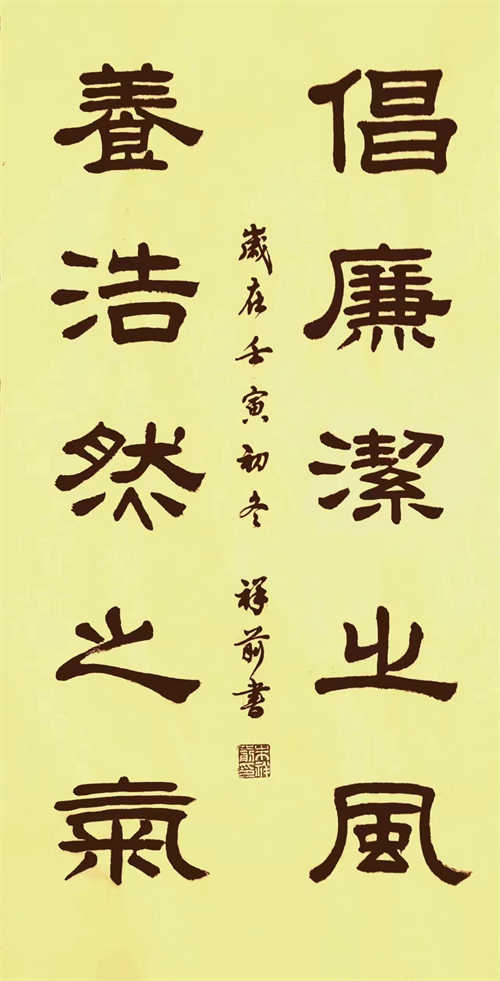 倡廉潔之風
養浩然之氣
歲在壬寅初冬 祥前書